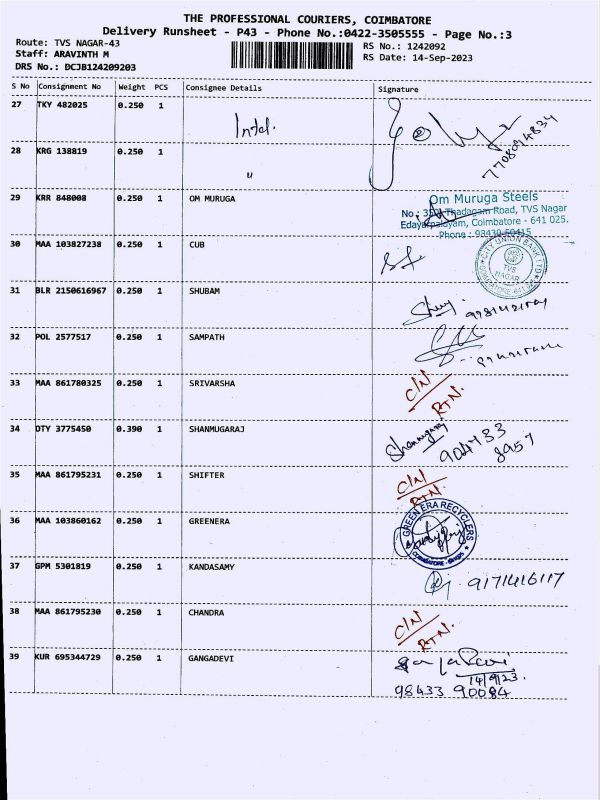 THE PROFESSIONAL COURIERS, COIMBATORE
Delivery Runsheet - P43 - Phone No.:0422-3505555 - Page No.:3
Route: TVS NAGAR-43
RS No.: 1242092
Staff: ARAVINTH M
RS Date: 14-Sep-2023
DRS No.: DCJB124209203
S No Consignment No Weight PCS Consignee Details Signature
27 TKY 482025 0.250 1
Intel.
7708094834
28 KRG 138819 0.250 1
"
29 KRR 848008 0.250 1 OM MURUGA
Om Muruga Steels
Thadagam Road, TVS Nagar
Edayarpalayam, Coimbatore - 641 025.
Phone : 98430 50415
30 MAA 103827238 0.250 1 CUB
CITY UNION BANK LTD
TVS
NAGAR
31 BLR 2150616967 0.250 1 SHUBAM
32 POL 2577517 0.250 1 SAMPATH
33 MAA 861780325 0.250 1 SRIVARSHA
C/N
RTN.
34 DTY 3775450 0.390 1 SHANMUGARAJ
Shanmugaraj
904733
8957
35 MAA 861795231 0.250 1 SHIFTER
C/N
RTN.
36 MAA 103860162 0.250 1 GREENERA
GREEN ERA RECYCLERS
37 GPM 5301819 0.250 1 KANDASAMY
9171416117
38 MAA 861795230 0.250 1 CHANDRA
C/N
RTN.
39 KUR 695344729 0.250 1 GANGADEVI
14/9/23.
98433 90084